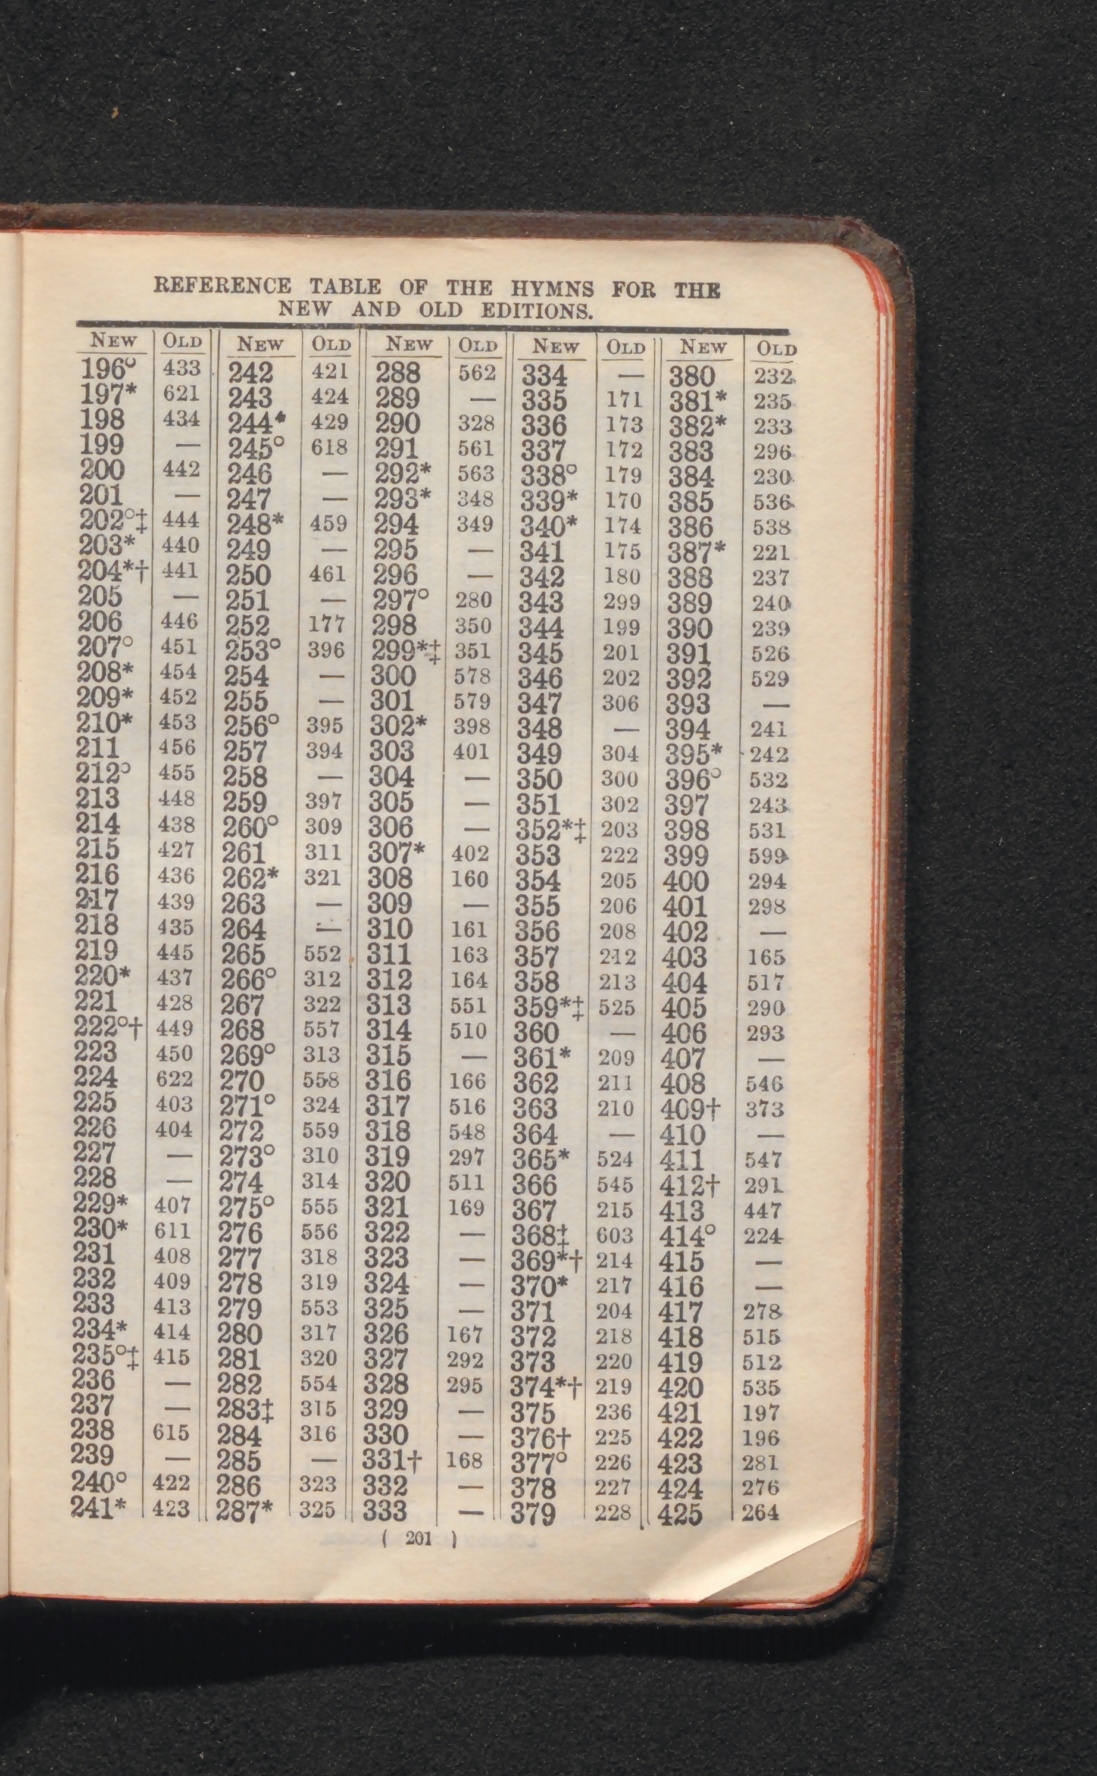 REFERENCE TABLE OF THE HYMNS FOR THE
NEW AND OLD EDITIONS.
NEW OLD NEW OLD NEW OLD NEW OLD NEW OLD
196° 433 242 421 288 562 334 — 380 232
197* 621 243 424 289 — 335 171 381* 235
198 434 244* 429 290 328 336 173 382* 233
199 — 245° 618 291 561 337 172 383 296
200 442 246 — 292* 563 338° 179 384 230
201 — 247 — 293* 348 339* 170 385 536
202°‡ 444 248* 459 294 349 340* 174 386 538
203* 440 249 — 295 — 341 175 387* 221
204*† 441 250 461 296 — 342 180 388 237
205 — 251 — 297° 280 343 299 389 240
206 446 252 177 298 350 344 199 390 239
207° 451 253° 396 299*‡ 351 345 201 391 526
208* 454 254 — 300 578 346 202 392 529
209* 452 255 — 301 579 347 306 393 —
210* 453 256° 395 302* 398 348 — 394 241
211 456 257 394 303 401 349 304 395* 242
212° 455 258 — 304 — 350 300 396° 532
213 448 259 397 305 — 351 302 397 243
214 438 260° 309 306 — 352*‡ 203 398 531
215 427 261 311 307* 402 353 222 399 599
216 436 262* 321 308 160 354 205 400 294
217 439 263 — 309 — 355 206 401 298
218 435 264 — 310 161 356 208 402 —
219 445 265 552 311 163 357 212 403 165
220* 437 266° 312 312 164 358 213 404 517
221 428 267 322 313 551 359*‡ 525 405 290
222°† 449 268 557 314 510 360 — 406 293
223 450 269° 313 315 — 361* 209 407 —
224 622 270 558 316 166 362 211 408 546
225 403 271° 324 317 516 363 210 409† 373
226 404 272 559 318 548 364 — 410 —
227 — 273° 310 319 297 365* 524 411 547
228 — 274 314 320 511 366 545 412† 291
229* 407 275° 555 321 169 367 215 413 447
230* 611 276 556 322 — 368‡ 603 414° 224
231 408 277 318 323 — 369*† 214 415 —
232 409 278 319 324 — 370* 217 416 —
233 413 279 553 325 — 371 204 417 278
234* 414 280 317 326 167 372 218 418 515
235°‡ 415 281 320 327 292 373 220 419 512
236 — 282 554 328 295 374*† 219 420 535
237 — 283‡ 315 329 — 375 236 421 197
238 615 284 316 330 — 376† 225 422 196
239 — 285 — 331† 168 377° 226 423 281
240° 422 286 323 332 — 378 227 424 276
241* 423 287* 325 333 — 379 228 425 264
( 201 )